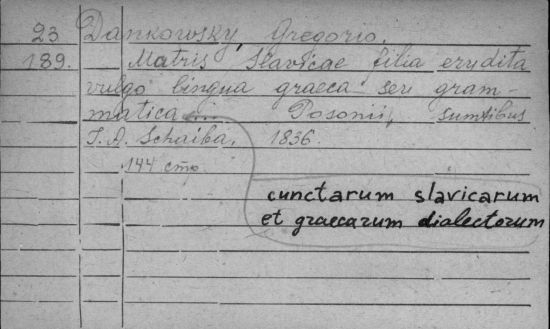 23 Dankowsky, Gregorio.
189. Matris Slavicae filia erudita
vulgo lingua graeca seu gram-
matica... Posonii, sumtibus
I. A. Schaiba, 1836.
144 стр.
cunctarum slavicarum
et graecarum dialectorum